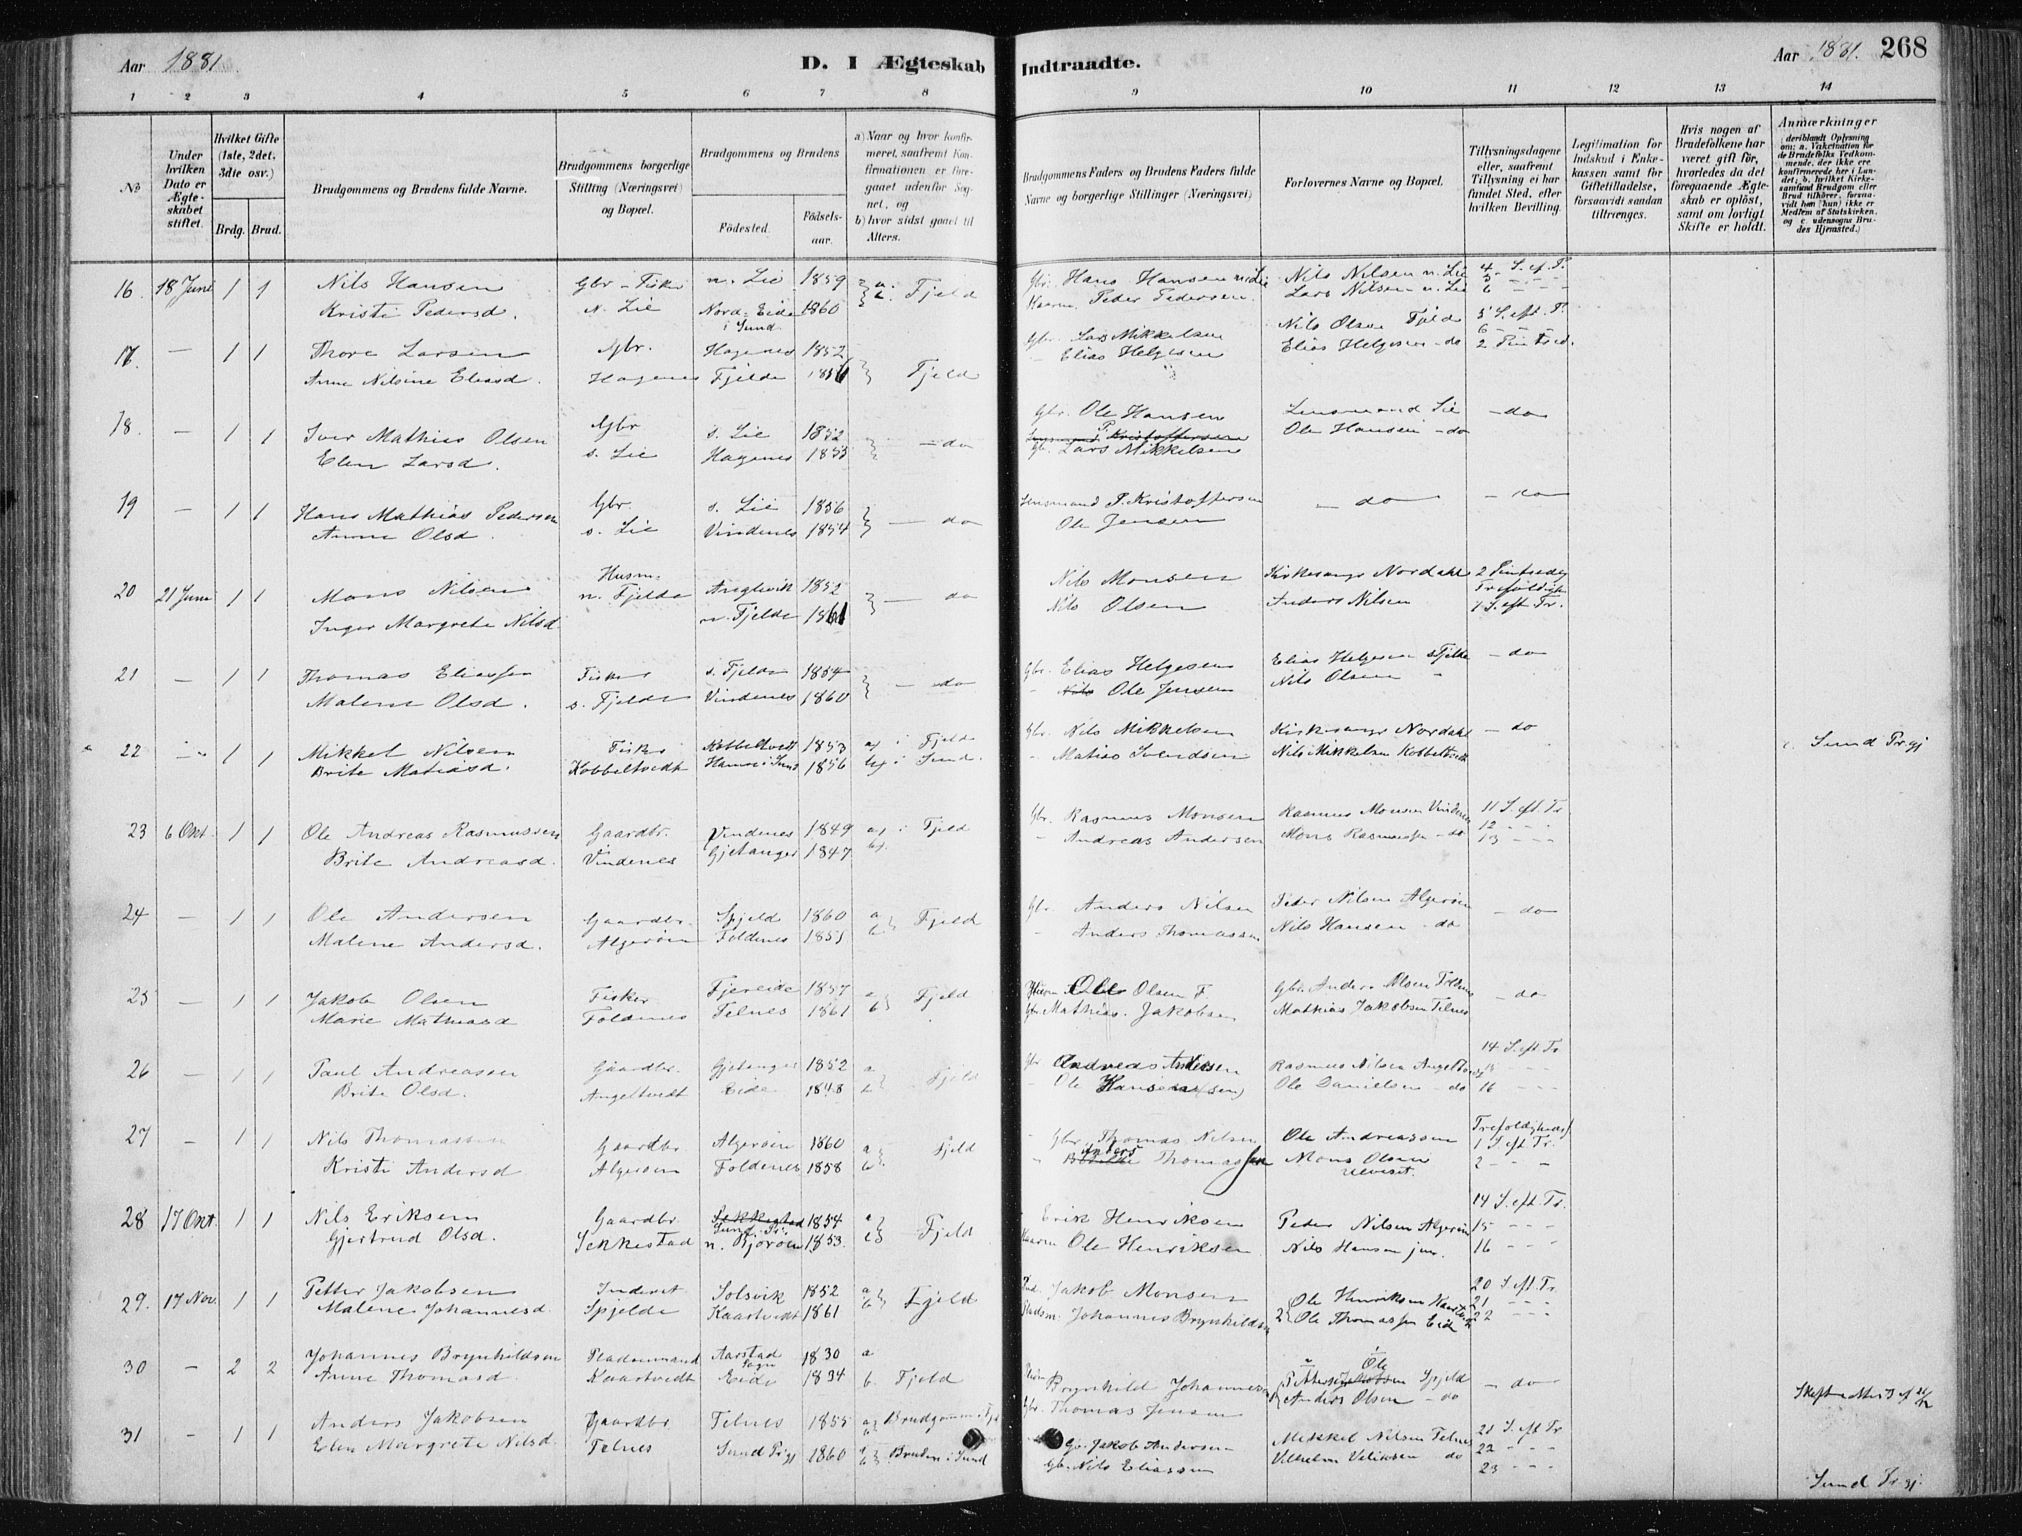 Aar 1881.
D. I Ægteskab Indtraadte.
Aar 1881. 268
1 2 3 4 5 6 7 8 9 10 11 12 13 14
No
Under hvilken Dato er Ægteskabet stiftet.
Hvilket Gifte (1ste, 2det, 3die osv.)
Brdg. Brud.
Brudgommens og Brudens fulde Navne.
Brudgommens borgerlige Stilling (Næringsvei) og Bopæl.
Brudgommens og Brudens
Födested. Födsels-aar.
a) Naar og hvor konfirmeret, saafremt Konfirmationen er foregaaet udenfor Sognet, og
b) hvor sidst gaaet til Alters.
Brudgommens Faders og Brudens Faders fulde Navne og borgerlige Stillinger (Næringsvei)
Forlovernes Navne og Bopæl.
Tillysningsdagene eller, saafremt Tillysning ei har fundet Sted, efter hvilken Bevilling.
Legitimation for Indskud i Enkekassen samt for Giftetilladelse, forsaavidt saadan tiltrænges.
Hvis nogen af Brudefolkene har været gift för, hvorledes da det foregaaende Ægteskab er oplöst, samt om lovligt Skifte er holdt.
Anmærkninger
(deriblandt Oplysning om: a. Vakcination for de Brudefolks Vedkommende, der ikke ere konfirmerede her i Landet; b. hvilket Kirkesamfund Brudgom eller Brud tilhörer, forsaavidt han (hun) ikke er Medlem af Statskirken, og c. udensogns Brudes Hjemsted.)
16. 18 Juni 1 1 Nils Hansen Gbr - Fisker n. Lie 1859 a. Fjeld Gbr. Hans Hansen n. Lie Nils Nilsen n. Lie 4 S. ef. T.
Kristi Pedersd. N. Lie Nord-Eide i Sund 1860 Peder Pedersen. Lars Nilsen n. Lie 5 6
17. — 1 1 Thore Larsen Gbr. Hagenes 1852 Fjeld Gbr. Lars Mikkelsen Nils Olsen Fjeld 5 S. eft. T.
Anne Nilsine Eliasd. Hagenes Fjelde Elias Helgesen Elias Helgesen - do 6
18. — 1 1 Iver Mathias Olsen Gbr s. Lie 1852 — do Gbr. Ole Hansen Lensmand Lie — do
Elen Larsd. s. Lie Hagenes 1855 Lensmand P. Kristoffersen Ole Hansen - do
Gb. Lars Mikkelsen
19 — 1 1 Hans Mathias Pedersen Gbr s. Lie 1856 — do Lensmand P. Kristoffersen — do — do
Anne Olsd. s. Lie Vindenes 1854 Ole Jensen
20 21 Juni 1 1 Mons Nilsen Husm. n. Fjelde 1852 — do Nils Monsen Kirkesanger Nordahl
Inger Margrete Nilsd n. Fjelde 1861 Nils Olsen Anders Nilsen
21 — 1 1 Thomas Eliassen Fisker s. Fjelde 1854 — do Gbr. Elias Helgesen Elias Helgesen s Fjelde — do
Malene Olsd. s. Fjelde Vindenes 1860 Nils Ole Jensen Nils Olsen
22 1 1 Mikkel Nilsen Fisker Kobbeltvedt 1853 a) i Fjeld Gbr. Nils Mikkelsen Kirkesanger Nordahl — do c. Sund Prgj
Brite Matiasd. Kobbeltvedt Hamre i Sund 1856 b) i Sund. Matias Svendsen Nils Mikkelsen Kobbeltvedt
23 6 Okt. 1 1 Ole Andreas Rasmussen Gaardbr. Vindenes 1849 a) i Fjeld Gbr. Rasmus Monsen Rasmus Monsen Vindenes 11 S. eft Tr
Brite Andreasd. Vindenes Gjetanger 1847 b) Andreas Andersen Mons Rasmussen - do 12 13
24 — 1 1 Ole Andersen Gaardbr. Spjelde 1860 a b Fjeld Gbr. Anders Nilsen Peder Nilsen Algeröen — do
Malene Andersd. Algeröen Foldenes 1851 Anders Thomassen Nils Hansen do
25 — 1 1 Jakob Olsen Fisker Fjereide 1857 a b Fjeld Ole Olsen F Gbr. Anders Olsen — do
Marie Mathiasd Foldenes Telnes 1861 Gbr Mathias Jakobsen Mathias Jakobsen Telnes
26 — 1 1 Paul Andreassen Gaardbr. Gjetanger 1852 a b Fjeld Gbr Andreas Andersen Rasmus Nilsen 14 S. eft Tr
Brite Olsd. Angeltvedt Eide 1848 Ole Hansen Ole Danielsen do 15 16
27 — 1 1 Nils Thomassen Gaardbr Algeröen 1860 a b Fjeld Gbr. Thomas Nilsen Ole Andreassen 1 S. eft Tr.
Kristi Andersd Algeröen Foldenes 1858 Anders Thomassen Mons Olsen 2
28 17 Okt. 1 1 Nils Eriksen Gaardbr Sekkestad 1854 a b Fjeld Erik Henriksen Peder Nilsen Algeröen 14 S. eft. Tr.
Gjertrud Olsd. Sekkestad Sund Pr. n. Bjoröen 1853. Ole Henriksen Nils Hansen jun. 15 16
29. 17 Nov. 1 1 Petter Jakobsen Inderst Solsvik 1852 a b Fjeld Jakob Monsen Ole Henriksen 20 S. eft Tr
Malene Johannesd. Spjelde Kaartvedt 1861 Johannes Brynhildsen Ole Thomassen Eide 21 22
30 — 2 2 Johannes Brynhildsen Pladsemand Aarstad Sogn 1830 a Brynhild Johannesen — do
Anne Thomasd. Kaartvedt Eide 1834 b. Fjeld Gbr. Thomas Jensen Anders Olsen — do
31 — 1 1 Anders Jakobsen Gaardbr. Telnes 1855 a b Brudgommen i Fjd Gb. Jakob Andersen Mikkel Nilsen Telnes 21 S. eft Tr
Elen Margrete Nilsd. Telnes Sund Prgj 1860 a b Bruden i Sund Gb. Nils Eliassen Vilhelm do 22 23 Sund Prgj.